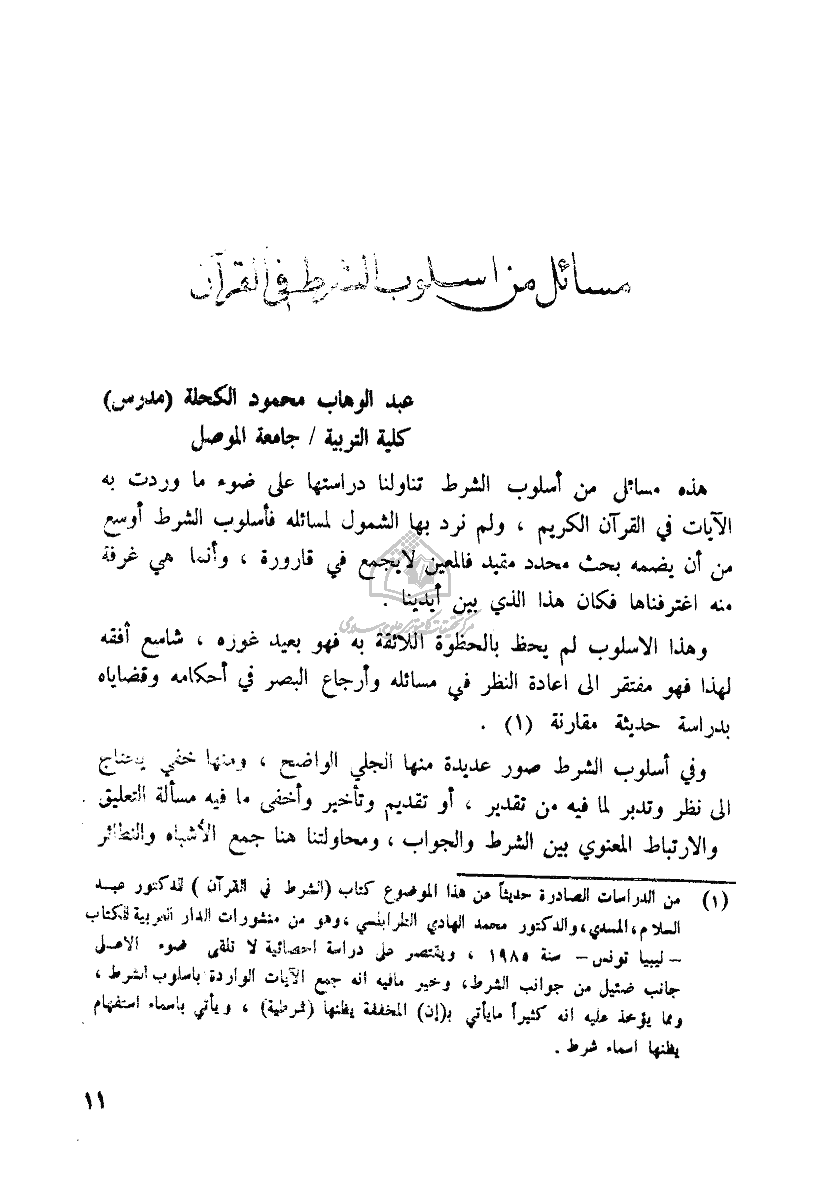 مسائل من اسلوب الشرط في القرآن
عبد الوهاب محمود الكحلة (مدرس)
كلية التربية / جامعة الموصل
هذه مسائل من أسلوب الشرط تناولنا دراستها على ضوء ما وردت به
الآيات في القرآن الكريم ، ولم نرد بها الشمول لمسائله فأسلوب الشرط أوسع
من أن يضمه بحث محدد مقيد فالمعين لايجمع في قارورة ، وأنما هي غرفة
منه اغترفناها فكان هذا الذي بين أيدينا .
وهذا الاسلوب لم يحظ بالحظوة اللائقة به فهو بعيد غوره ، شاسع أفقه
لهذا فهو مفتقر الى اعادة النظر في مسائله وأرجاع البصر في أحكامه وقضاياه
بدراسة حديثة مقارنة (١) .
وفي أسلوب الشرط صور عديدة منها الجلي الواضح ، ومنها خفي يحتاج
الى نظر وتدبر لما فيه من تقدير ، أو تقديم وتأخير وأخفى ما فيه مسألة التعليق
والارتباط المعنوي بين الشرط والجواب ، ومحاولتنا هنا جمع الأشباه والنظائر
(١) من الدراسات الصادرة حديثاً عن هذا الموضوع كتاب (الشرط في القرآن ) للدكتور عبد
السلام ، المسدي ، والدكتور محمد الهادي الطرابلسي ، وهو من منشورات الدار العربية للكتاب
– ليبيا تونس – سنة ١٩٨٥ ، ويقتصر على دراسة احصائية لا تلقي ضوء الاصلى
جانب ضئيل من جوانب الشرط ، وخير مافيه انه جمع الآيات الواردة باسلوب الشرط ،
ومما يؤخذ عليه انه كثيراً مايأتي بـ(إن) المخففة يظنها (شرطية) ، ويأتي باسماء استفهام
يظنها اسماء شرط .
١١